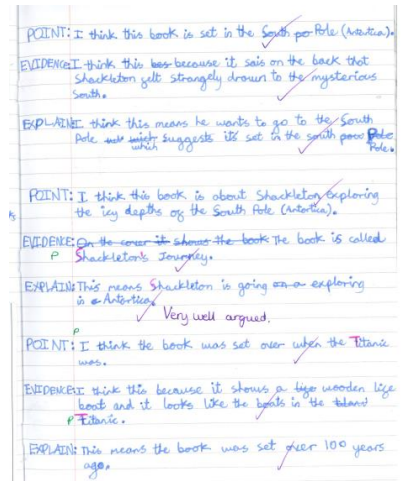 POINT: I think this book is set in the South po Pole (Antartica).
EVIDENCE: I think this bes because it sais on the back that
Shackleton felt strangely drawn to the mysterious
South.
EXPLAIN: I think this means he wants to go to the South
Pole which suggests it's set in the south Pole.
POINT: I think this book is about Shackleton exploring
the icy depths of the South Pole (Antartica).
EVIDENCE: On the cover it shows the book The book is called
P Shackleton's Journey.
EXPLAIN: This means Shackleton is going on a exploring
in a Antartica.
Very well argued.
P
POINT: I think the book was set over when the Titanic
was.
EVIDENCE: I think this because it shows a wooden life
boat and it looks like the boats in the
P Titanic.
EXPLAIN: This means the book was set over 100 years
ago.